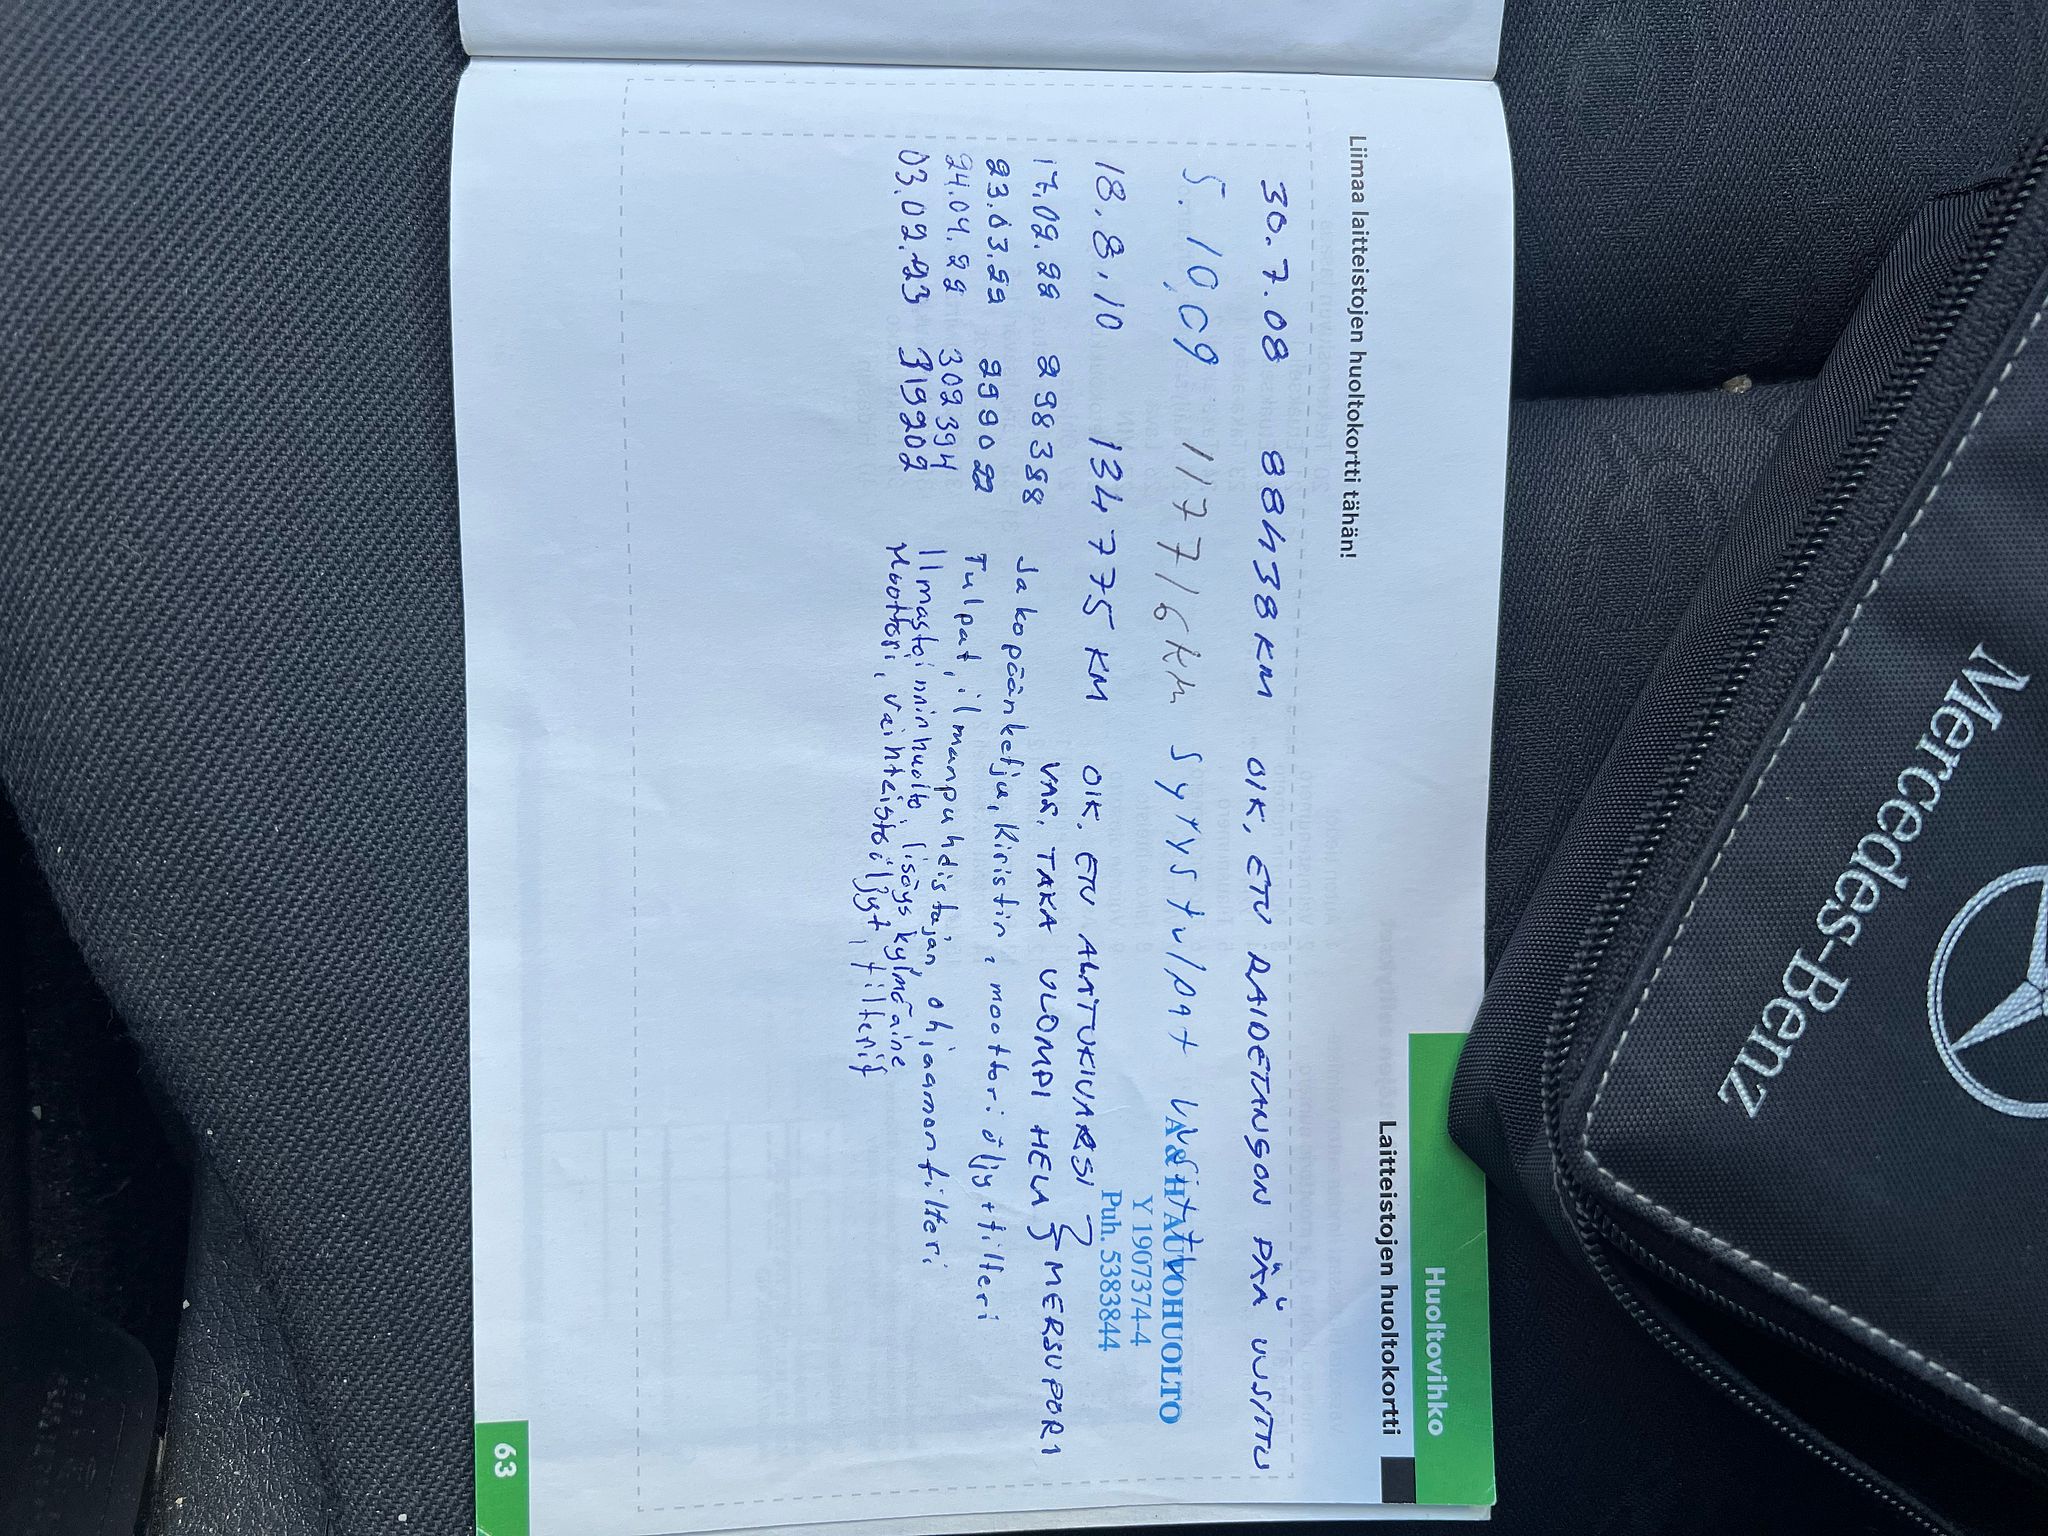 Huoltovihko
Laitteistojen huoltokortti
Liimaa laitteistojen huoltokortti tähän!
30.7.08 88438 KM OIK. ETU RAIDETANGON PÄÄ UUSITTU
5.10.09 117716 km Sytystulpat
VA&H AUTOHUOLTO
Y 1907374-4
Puh. 5383844
18.8.10 134775 KM OIK. ETU ALATUKIVARSI
VAS. TAKA ULOMPI HELA } MERSUPORI
17.02.22 298388 Jakopäänketju, kiristin, moottoriöljy+filtteri
23.03.22 299022 Tulpat, ilmanpuhdistajan, ohjaamonfiltteri
24.04.22 302394 Ilmastoinninhuolto, lisäys kylmäaine
03.02.23 319202 Moottori, vaihteistoöljyt, filterit
63
Mercedes-Benz